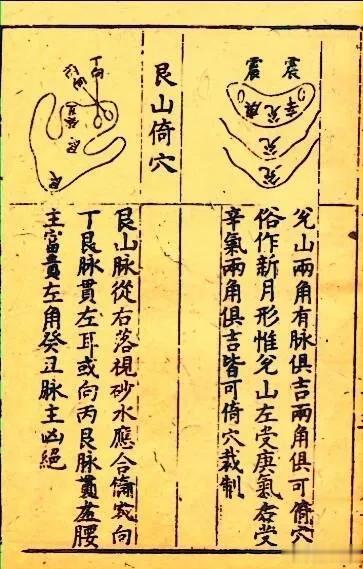 震 震
辛兌庚
兌
兌
兌山兩角有脉俱吉兩角俱可倚穴
俗作新月形惟兌山左受庚氣右受
辛氣兩角俱吉皆可倚穴裁制
艮山倚穴
丁向
艮
艮
艮山脉從右落視砂水應合倚或向
丁艮脉貫左耳或向丙艮脉貫虛腰
主富貴左角癸丑脉主凶絕